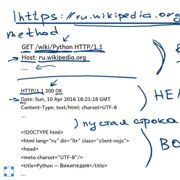 https://ru.wikipedia.org
method
GET /wiki/Python HTTP/1.1
Host: ru.wikipedia.org
HTTP/1.1 200 OK
Date: Sun, 10 Apr 2016 18:21:18 GMT
Content-Type: text/html; charset=UTF-8
...
) пустая строка
<!DOCTYPE html>
<html lang="ru" dir="ltr" class="client-nojs">
<head>
<meta charset="UTF-8"/>
<title>Python — Википедия</title>